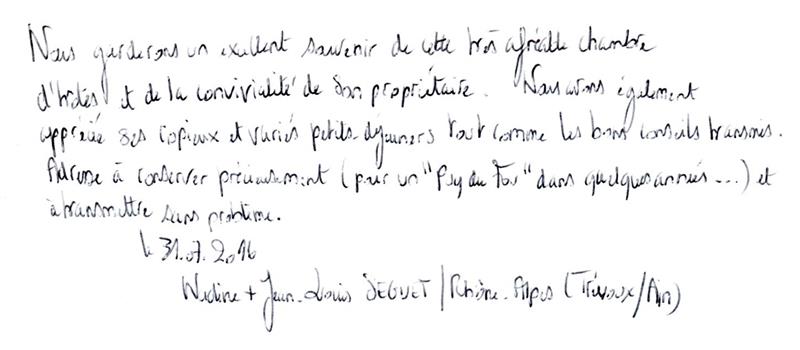 Nous garderons un excellent souvenir de cette très agréable chambre
d'hôtes et de la convivialité de son propriétaire. Nous avons également
apprécié ses copieux et variés petits-déjeuners tout comme les bons conseils transmis.
Adresse à conserver précieusement (pour un "Puy du Fou" dans quelques années...) et
à transmettre sans problème.
le 31.07.2016
+ Jean-Louis / Rhône-Alpes (Trévoux/Ain)